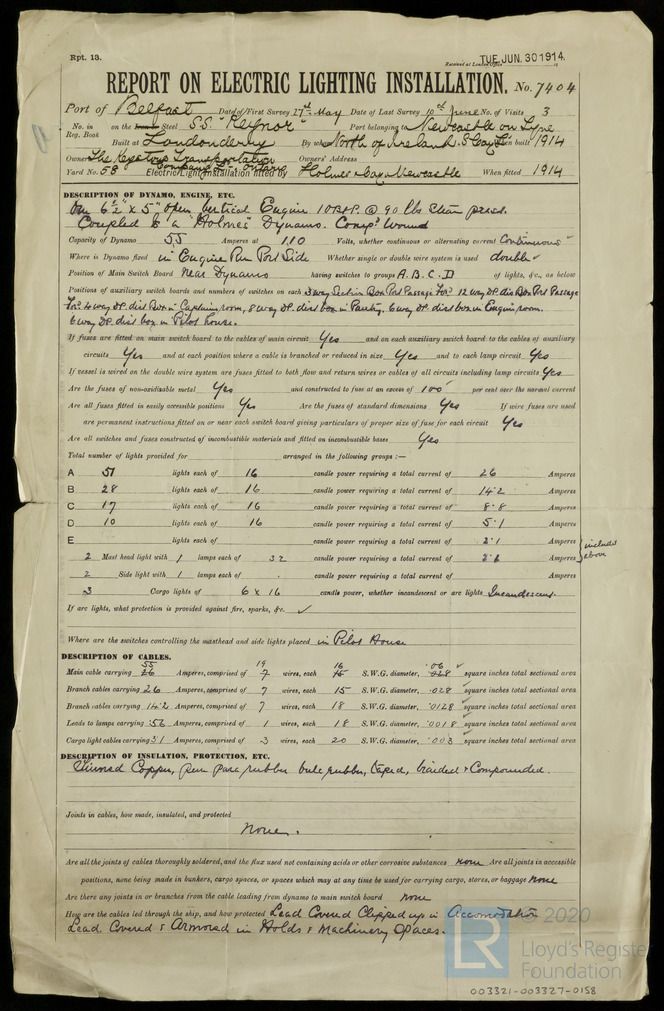 Rpt. 13.
Received at London Office TUE. JUN. 30 1914.
REPORT ON ELECTRIC LIGHTING INSTALLATION. No. 7404
Port of Belfast Date of First Survey 17th May Date of Last Survey 10th June No. of Visits 3
No. in on the Steel S.S. Port belonging to Newcastle on Tyne
Reg. Book Built at Londonderry By whom North of Ireland S. Coy Ld When built 1914
Owners The Keystone Transportation Owners' Address
Company
Yard No. 58 Electric Light Installation fitted by Holmes & Coy Newcastle When fitted 1914
DESCRIPTION OF DYNAMO, ENGINE, ETC.
One 6½" x 5" open Vertical Engine 10 BHP. @ 90 lbs steam press.
Coupled to a "Holmes" Dynamo. Compd Wound
Capacity of Dynamo 55 Amperes at 110 Volts, whether continuous or alternating current Continuous
Where is Dynamo fixed in Engine Rm Port Side Whether single or double wire system is used double
Position of Main Switch Board Near Dynamo having switches to groups A. B. C. D of lights, &c., as below
Positions of auxiliary switch boards and numbers of switches on each 3 way Section Box Port Passage For'd 12 way DP. dis Box Port Passage
For'd 4 way DP. dist Box in Captains room, 8 way DP. dist box in Pantry, 6 way DP. dist box in Engine room.
6 way DP. dist box in Pilot house.
If fuses are fitted on main switch board to the cables of main circuit Yes and on each auxiliary switch board to the cables of auxiliary
circuits Yes and at each position where a cable is branched or reduced in size Yes and to each lamp circuit Yes
If vessel is wired on the double wire system are fuses fitted to both flow and return wires or cables of all circuits including lamp circuits Yes
Are the fuses of non-oxidisable metal Yes and constructed to fuse at an excess of 100 per cent over the normal current
Are all fuses fitted in easily accessible positions Yes Are the fuses of standard dimensions Yes If wire fuses are used
are permanent instructions fitted on or near each switch board giving particulars of proper size of fuse for each circuit Yes
Are all switches and fuses constructed of incombustible materials and fitted on incombustible bases Yes
Total number of lights provided for arranged in the following groups :—
A 51 lights each of 16 candle power requiring a total current of 26 Amperes
B 28 lights each of 16 candle power requiring a total current of 14.2 Amperes
C 17 lights each of 16 candle power requiring a total current of 8.8 Amperes
D 10 lights each of 16 candle power requiring a total current of 5.1 Amperes
E lights each of candle power requiring a total current of 2.1 Amperes
2 Mast head light with 1 lamps each of 32 candle power requiring a total current of Amperes included above
2 Side light with 1 lamps each of candle power requiring a total current of Amperes
3 Cargo lights of 6 x 16 candle power, whether incandescent or arc lights Incandescent.
If arc lights, what protection is provided against fire, sparks, &c. ✓
Where are the switches controlling the masthead and side lights placed in Pilot House
DESCRIPTION OF CABLES.
55 19 16 .06
Main cable carrying 26 Amperes, comprised of 7 wires, each 15 S.W.G. diameter, .028 square inches total sectional area
Branch cables carrying 26 Amperes, comprised of 7 wires, each 15 S.W.G. diameter, .028 square inches total sectional area
Branch cables carrying 14.2 Amperes, comprised of 7 wires, each 18 S.W.G. diameter, .0128 square inches total sectional area
Leads to lamps carrying .56 Amperes, comprised of 1 wires, each 18 S.W.G. diameter, .0018 square inches total sectional area
Cargo light cables carrying 3.1 Amperes, comprised of 3 wires, each 20 S.W.G. diameter, .003 square inches total sectional area
DESCRIPTION OF INSULATION, PROTECTION, ETC.
Tinned Copper, pure para rubber vulc rubber, taped, braided & Compounded.
Joints in cables, how made, insulated, and protected
none.
Are all the joints of cables thoroughly soldered, and the flux used not containing acids or other corrosive substances none Are all joints in accessible
positions, none being made in bunkers, cargo spaces, or spaces which may at any time be used for carrying cargo, stores, or baggage none
Are there any joints in or branches from the cable leading from dynamo to main switch board none
How are the cables led through the ship, and how protected Lead Covered Clipped up in Accomodation
Lead Covered & Armored in Holds & Machinery Spaces.
© 2020
LR
Lloyd's Register
Foundation
003321-003327-0158